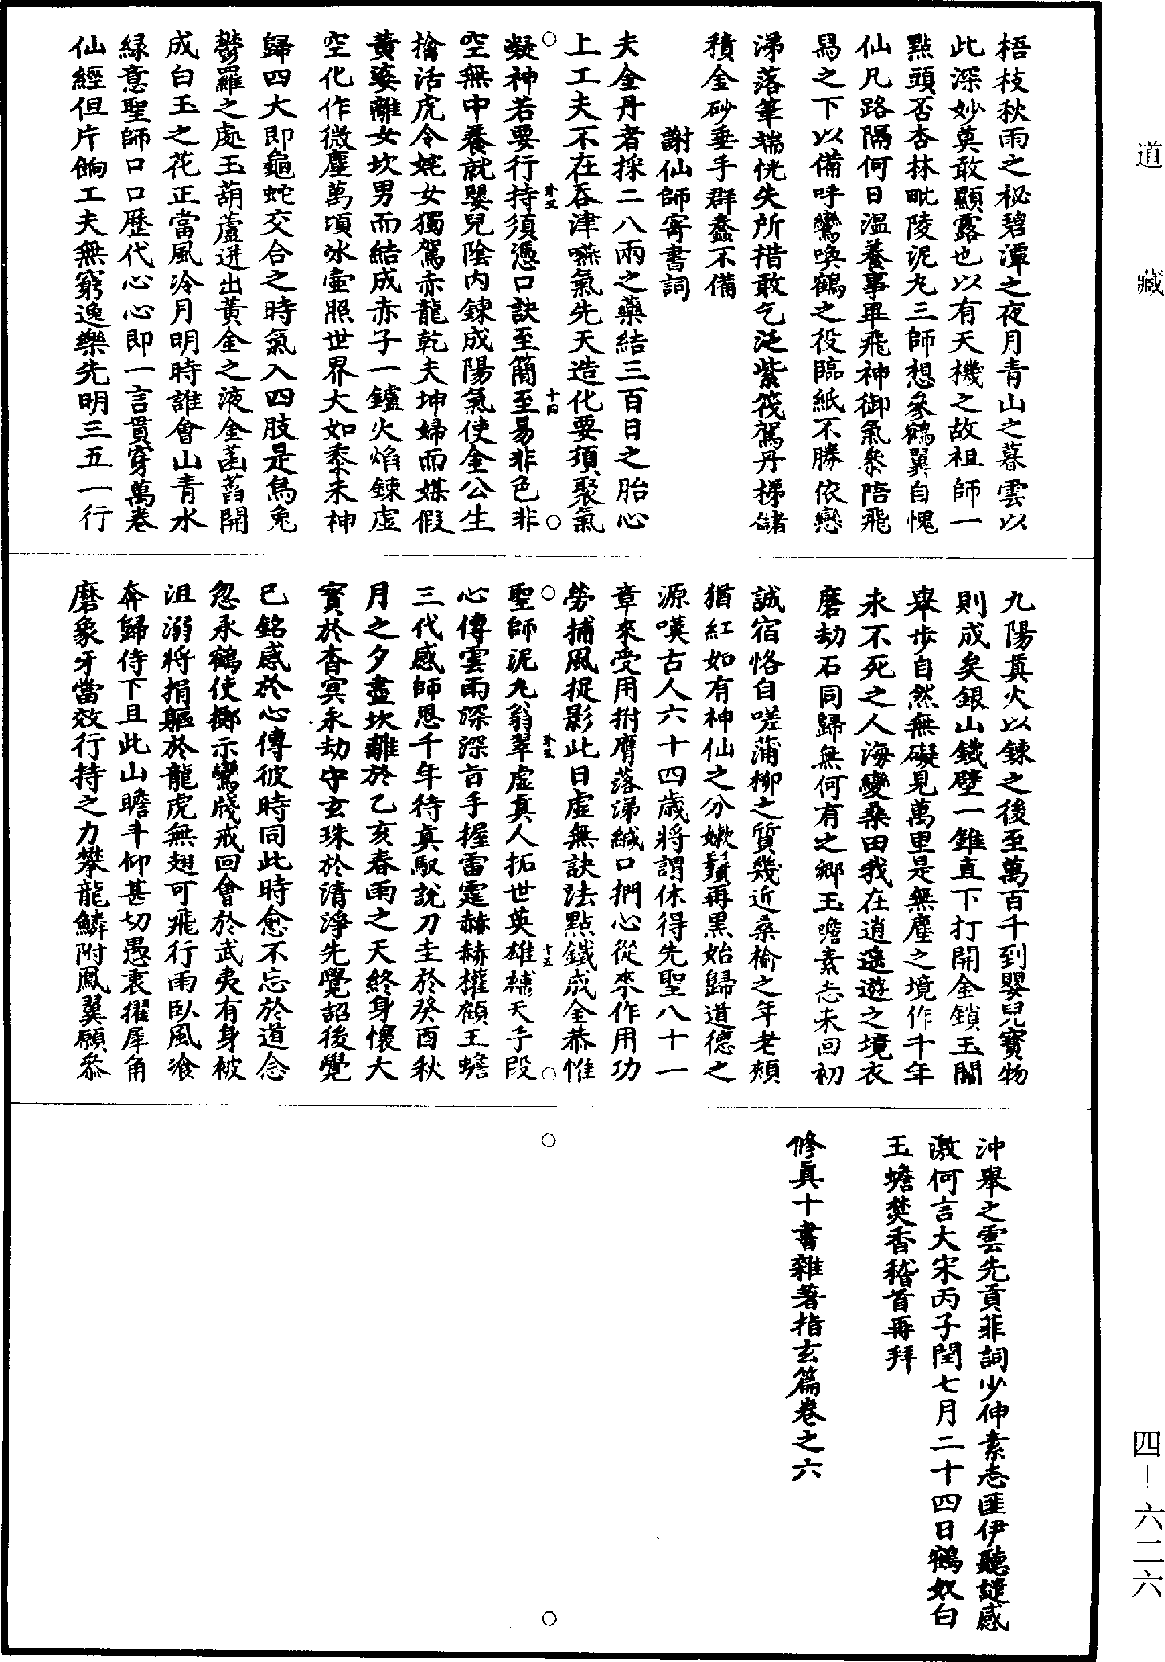 道藏
梧枝秋雨之秘碧潭之夜月青山之暮雲以
此深妙奠敢顯露也以有天機之故祖師一
點頭否杏林毗陵泥丸三師想參鶴翼自愧
仙凡路隔何日溫養事畢飛神御氣參陪飛
舄之下以備呼鸞喚鶴之役臨紙不勝依戀
涕落筆端恍失所措敢乞泛紫筏駕丹梯儲
積金砂垂手群蠢不備
謝仙師寄書詞
夫金丹者採二八兩之藥結三百日之胎心
上工夫不在吞津嚥氣先天造化要須聚氣
凝神若要行持須憑口訣至簡至易非色非
空無中養就嬰兒陰內鍊成陽氣使金公生
擒活虎令姹女獨駕赤龍乾夫坤婦而媒假
黃婆離女坎男而結成赤子一鑪火焰鍊虛
空化作微塵萬頃冰壺照世界大如黍米神
歸四大即龜蛇交合之時氣入四肢是烏兔
鬱羅之處玉葫蘆迸出黃金之液金菡萏開
成白玉之花正當風冷月明時誰會山青水
綠意聖師口口歷代心心即一言貫穿萬卷
仙經但片餉工夫無窮逸樂先明三五一行
九陽真火以鍊之後至萬百千到嬰兒寶物
則成矣銀山鐵壁一錐直下打開金鎖玉關
舉步自然無礙見萬里是無塵之境作千年
未不死之人海變桑田我在逍遙遊之境衣
磨劫石同歸無何有之鄉玉蟾素志未回初
誠宿恪自嗟蒲柳之質幾近桑榆之年老頰
猶紅如有神仙之分嫩鬚再黑始歸道德之
源嘆古人六十四歲將謂休得先聖八十一
章來受用拊膺落涕緘口捫心從來作用功
勞捕風捉影此日虛無訣法點鐵成金恭惟
聖師泥丸翁翠虛真人拓世英雄補天手段
心傳雲雨深深旨手握雷霆赫赫權顧玉蟾
三代感師恩千年待真馭說刀圭於癸酉秋
月之夕盡坎離於乙亥春雨之天終身懷大
寶於杳冥永劫守玄珠於清淨先覺詔後覺
已銘感於心傳彼時同此時愈不忘於道念
忽承鶴使擲示鸞牋戒回會於武夷有身被
沮溺將捐軀於龍虎無翅可飛行雨臥風飡
奔歸侍下且此山瞻斗仰甚切愚衷擢犀角
磨象牙當效行持之力攀龍鱗附鳳翼願參
沖舉之雲先貢菲詞少伸素志匪伊聽謹感
激何言大宋丙子閏七月二十四日鶴奴白
玉蟾焚香稽首再拜
修真十書雜著指玄篇卷之六
四—六二六